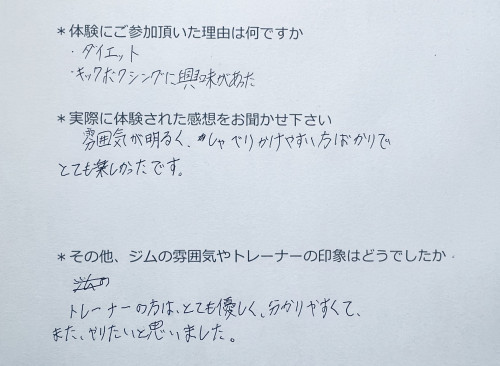 ＊体験にご参加頂いた理由は何ですか
・ダイエット
・キックボクシングに興味があった
＊実際に体験された感想をお聞かせ下さい
雰囲気が明るく、しゃべりかけやすい方ばかりで
とても楽しかったです。
＊その他、ジムの雰囲気やトレーナーの印象はどうでしたか
トレーナーの方は、とても優しく、分かりやすくて、
また、やりたいと思いました。